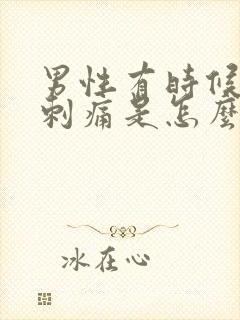 男性有時候
刺痛是怎麼
冰在心